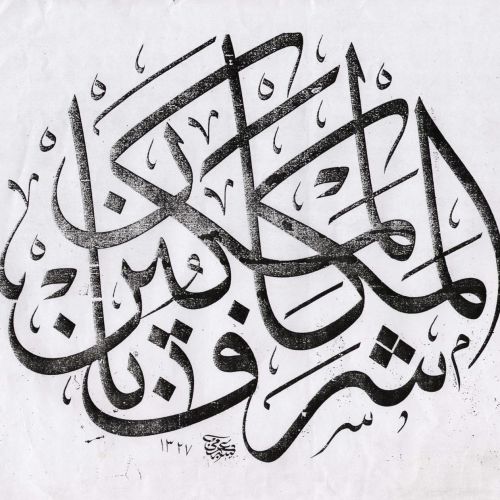 شرف المكان بالمكين
١٣٢٧